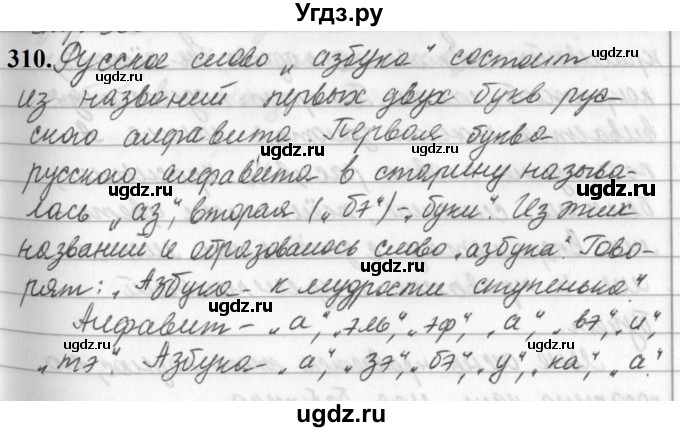 Угдз.ру
310. Русское слово „азбука“ состоит
из названий первых двух букв рус-
ского алфавита. Первая буква
русского алфавита в старину называ-
лась „аз“, вторая („бэ“) - „буки“. Из этих
названий и образовалось слово „азбука“. Гово-
рят: „Азбука - к мудрости ступенька“.
Алфавит - „а“, „эль“, „эф“, „а“, „вэ“, „и“,
„тэ“. Азбука - „а“, „зэ“, „бэ“, „у“, „ка“, „а“.
ugdz.ru
ugdz.ru
ugdz.ru
ugdz.ru
ugdz.ru
ugdz.ru
ugdz.ru
ugdz.ru
ugdz.ru
ugdz.ru
ugdz.ru